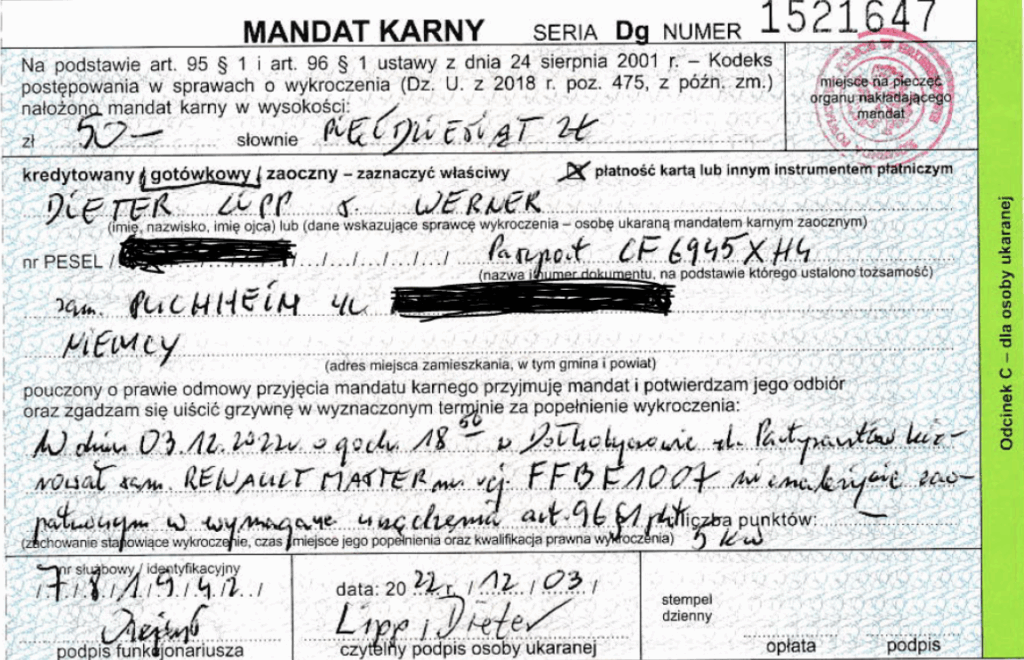 MANDAT KARNY SERIA Dg NUMER 1521647
Na podstawie art. 95 § 1 i art. 96 § 1 ustawy z dnia 24 sierpnia 2001 r. – Kodeks
postępowania w sprawach o wykroczenia (Dz. U. z 2018 r. poz. 475, z późn. zm.)
nałożono mandat karny w wysokości:
zł 50,— słownie PIĘĆDZIESIĄT ZŁ
miejsce na pieczęć
organu nakładającego
mandat
kredytowany / gotówkowy / zaoczny – zaznaczyć właściwy
płatność kartą lub innym instrumentem płatniczym
DIETER LIPP s. WERNER
(imię, nazwisko, imię ojca) lub (dane wskazujące sprawcę wykroczenia – osobę ukaraną mandatem karnym zaocznym)
nr PESEL Paszport CF6945XH4
(nazwa i numer dokumentu, na podstawie którego ustalono tożsamość)
zam. PUCHHEIM ul.
NIEMCY
(adres miejsca zamieszkania, w tym gmina i powiat)
pouczony o prawie odmowy przyjęcia mandatu karnego przyjmuję mandat i potwierdzam jego odbiór
oraz zgadzam się uiścić grzywnę w wyznaczonym terminie za popełnienie wykroczenia:
W dniu 03.12.2022r o godz. 18 50 w Dołhobyczowie ul. Partyzantów kie-
rował sam. RENAULT MASTER nr rej. FFBF1007 zao-
patrzonym w wymagane urządzenia art. 96 §1 pkt
liczba punktów: —
(zachowanie stanowiące wykroczenie, czas i miejsce jego popełnienia oraz kwalifikacja prawna wykroczenia) 5 kw
nr służbowy / identyfikacyjny
781942
podpis funkcjonariusza
data: 2022r./12/03/
Lipp, Dieter
czytelny podpis osoby ukaranej
stempel
dzienny
opłata podpis
Odcinek C – dla osoby ukaranej